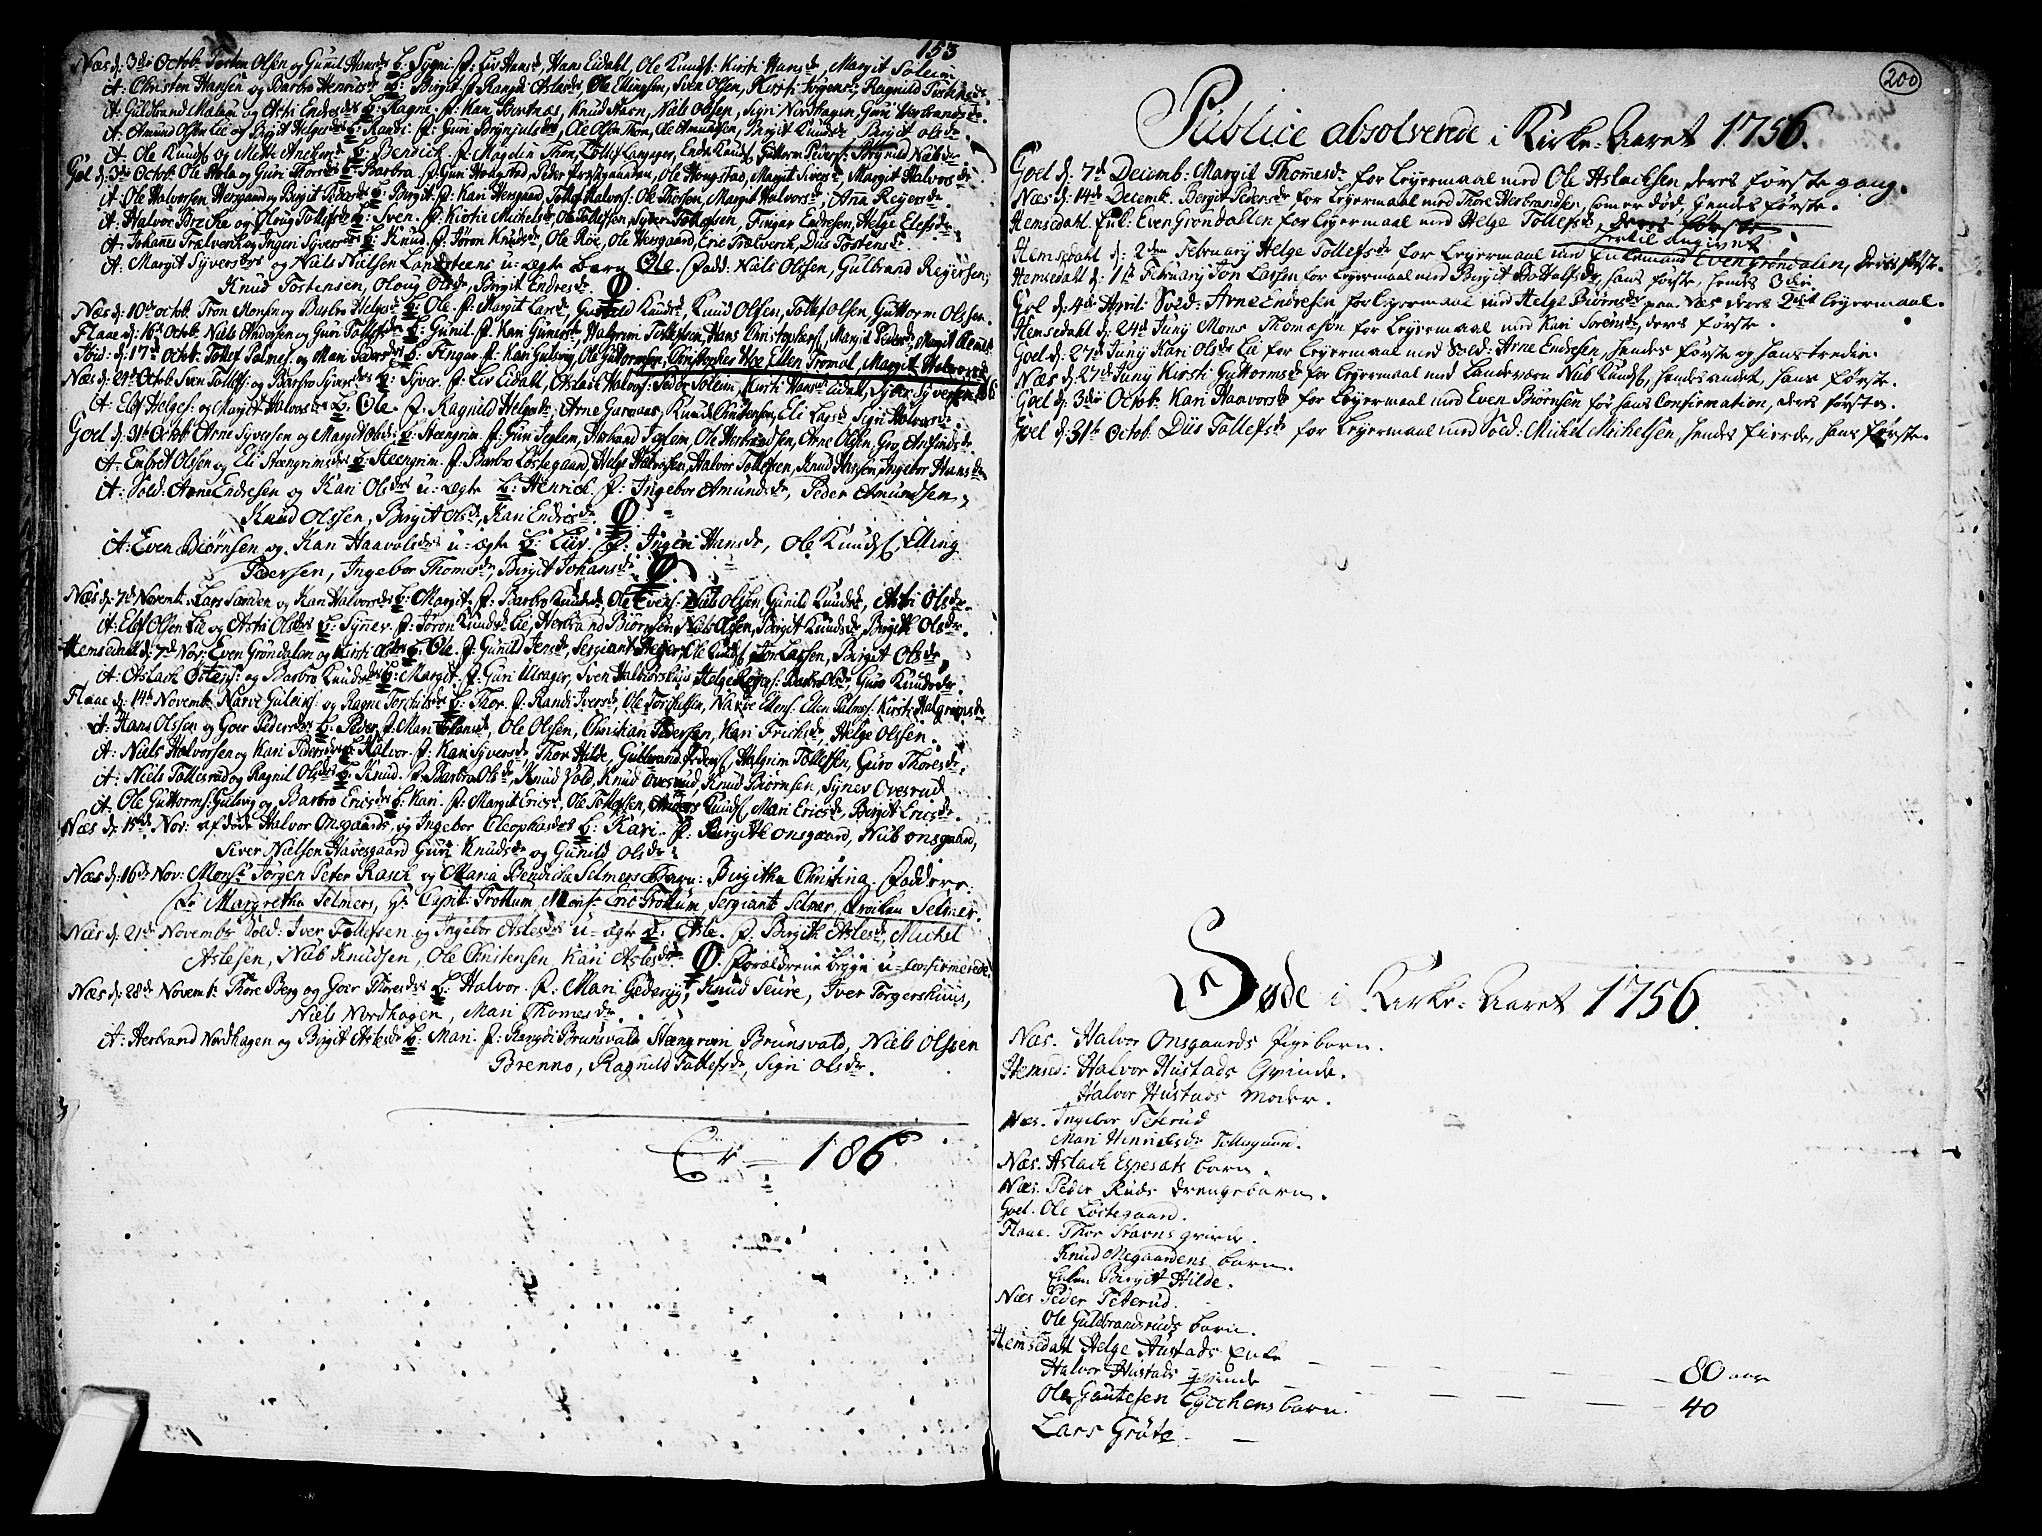 153
Næs d: 3die Octob: Tosten Olsen og Gunil Hansdr b: Sygni. f: Liv Hansdr, Hans Eidahl, Ole Knuds: Kirsti Hansdr, Margit Solem
it: Christen Hansen og Barbro Henricsdr b: Birgit. f: Randi Aslesdr, Ole Ellingsen, Sven Olsen, Kirsti Jørgensdr Ragnild Tostensdr
it: Guldbrand Mælum og Astri Endresdr b: Ragne. f: Kari Bortnæs, Knud Havn, Niels Olssen, Sigri Nordhagen, Guri Herbrandsdr.
it: Amund Olsen Lie og Birgit Helgesdr b: Randi. f: Guri Brynjulsdr, Ole Olsen Thon, Ole Amundsen, Birgit Knudsdr Birgit Olsdr.
it: Ole Knuds og Mette Andersdr b: Bendich. f: Magdli Thon, Tollef Langeger, Endre Knuds, Guttorm Peders: Brynild Nielsdr
Gol d: 3die Octob: Ole Hola og Guri Thoresdr b: Barbra. f: Guri Hougstad, Peder Præstgaarden, Ole Hougstad, Margit Siversdr, Margit Halvorsdr
it: Ole Halvorsen Hersgaard og Birgit Pedersdr b: Birgit. f: Kari Hersgaard, Tollef Halvors: Ole Thorsen, Margit Halvorsdr, Ana Reyersdr.
it: Halvor Brekke og Oloug Tollefsdr b: Sven. f: Kirstie Michelsdr, Ole Tollefsen, Syver Tollefsen, Fingar Endresen, Helge Elefsdr.
it: Johannes Trælverk og Ingeri Syversdr b: Knud. f: Jøron Knudsdr, Ole Röe, Ole Hersgaard, Eric Trælverck, Dus Tostensdr
it: Margit Syversdr og Niels Nielsen Landsteens u-ægte barn Ole. Fadd: Niels Olssen, Gulbrand Regersen,
Knud Tostensen, Oloug Olsdr, Birgit Endresdr.
Næs d: 10de Octob: Tron Monsen og Barbro Helgesdr b: Ole. f: Margit Larsdr, Gunild Knudsdr, Knud Olssen, Tollef Olsen, Guttorm Olssen.
Flaae d: 16de Octob: Niels Andersen og Guri Tollefsdr b: Gunil. f: Kari Gunersdr, Halgrim Tollefsen, Hans Christophers, Margit Pedersdr, Margit Olsdr
Ibid: d: 17de Octob: Tollef Palmes: og Mari Pedersdr b: Fingar. f: Kari Gulsvig, Ole Guttormsen, Christopher Woe, Ellen Tromal, Margit Halvorsdr
Næs d: 24de Octob: Sven Tollefs: og Barbro Syversdr b: Syver. f: Liv Eidall, Aslach Halvors: Peder Solem, Kirsti Hansdr Eidal, Syver Syversen
it: Elef Helges: og Margit Halvorsdr b: Ole. f: Ragnild Helgesdr, Arne Garnaas, Knud Knudsen, Eli Larsdr Sigri Halvorsdr.
Goel d: 31te Octob: Arne Syversen og Margit Olsdr b: Steengrim. f: Guri Jeglem, Herbrand Jeglem, Ole Herbrandsen, Arne Olsen, Gro Arfindsdr
it: Embret Olssen og Eli Steengrimsdr b: Steengrim. f: Barbro Løstegaard, Helge Halvorsen, Halvor Tollefsen, Knud Hansen, Ingebor Hansdr
it: Sold: Arne Endresen og Kari Olsdr u-ægte b: Henrick. f: Ingebor Amundsdr, Peder Amundsen,
Knud Olssen, Birgit Olsdr, Kari Endresdr.
it: Even Biörnsen og Kari Haavolsdr u-ægte b: Liv. f: Ingeri Hansdr, Ole Knuds, Elling
Pedersen, Ingebor Thomesdr, Birgit Johansdr
Næs d: 7de Novemb: Lars Sanden og Kari Halvorsdr b: Margit. f: Barbro Knudsdr, Ole Evens: Niels Olssen, Gunild Knudsdr, Astri Olsdr.
it: Elef Olsen Lie og Astri Olsdr b: Synnev. f: Jøron Knudsdr Lie, Herbrand Biörnsen, Niels Olssen, Birgit Knudsdr, Birgith Olsdr.
Hemsedahl d: 7de Nov: Even Gröndalen og Kirsti Olsdr b: Ole. f: Gunild Jensdr, Sergiant Heyer, Ole Knuds, Jon Larssen, Birgit Olsdr
it: Aslach Ostens: og Barbro Knudsdr b: Margit. f: Guri Ulsager, Sven Halvorshuus, Helge Reyers: Barbro Olsdr, Guro Knudsdr
Flaae d: 14de Novemb: Narve Guleics: og Ragne Torchildsdr b: Thor. f: Randi Iversdr, Ole Torchelssen, Narve Ellens: Ellen Palmes: Kirsti Halgrimsdr
it: Hans Olssen og Goer Pedersdr b: Peder. f: Mari Johansdr, Ole Olssen, Christian Pedersen, Kari Frichsdr, Helge Olssen.
it: Niels Halvorsen og Kari Pedersdr b: Halvor. f: Kari Syversdr, Thor Hilde, Gulbrand Peders, Halgrim Tollefsen, Guro Thoresdr.
it: Niels Tollesrud og Ragnil Olsdr b: Knud. f: Barbro Olsdr, Knud Vold, Knud Ovesrud, Knud Biörnsen, Synev Ovesrud
it: Ole Guttorms: Gulsvig og Barbro Ericsdr b: Kari. f: Margit Ericsdr, Ole Tollefsen, Anders Knuds, Mari Ericsdr, Birgit Ericsdr.
Næs d: 15de Nov: afdöde Halvor Onsgaards, og Ingebor Cleophasdr b: Kari. f: Birgith Onsgaard, Niels Onsgaard,
Siver Nielsen Havesgaard Guri Knudsdr og Gunild Olsdr.
Næs d: 16de Nov: Monsr Jörgen Peter Rasch og Maria Bendicta Selmers Barn: Birgitha Christina. Faddere:
Fr Margretha Selmers, Hr Capit: Frottum, Mons: Eric Frottum, Sergiant Selmer, Froiken Selmer.
Næs d: 21de Novembr Sold: Iver Tollefsen og Ingebor Aslesdr u-ægte b: Asle. f: Birgith Aslesdr, Michel
Aslesen, Niels Knudsen, Ole Christensen, Kari Aslesdr. Forældrene begge u-confirmerede.
Næs d: 28de Novemb: Thore Berg og Goer Thoresdr b: Halvor. f: Mari Gederøy, Knud Seure, Iver Torgershuus,
Niels Nordhagen, Mari Thomesdr.
it: Herbrand Nordhagen og Birgit Aslesdr b: Mari. f: Rangdi Brunsvald, Steengrim Brunsvald, Niels Olssen
Brenno, Ragnild Tollefsdr, Sigri Olsdr.
Er = 186
200
Publice absolverede i Kirke-Aaret 1756.
Goel d: 7de Decemb: Margit Thomesdr for Leyermaal med Ole Aslachsen, deres første gang.
Næs d: 14de Decemb: Bergit Pedersdr for Leyermaal med Thore Herbrandsen, som er död, hendes første.
Hemsedahl Eul: Even Gröndallen for Leyermaal med Helge Tollefsdr, deres første
Hemsedahl d: 2den February Helge Tollefsdr for Leyermaal med Even Gröndalen, deres første.
Hemsedahl d: 1te February Jon Larssen for Leyermaal med Birgit Bottolfsdr, hans første, hendes 3die.
Gol d: 4de April: Sold: Arne Endresen for Leyermaal med Helge Biörnsdr paa Næs deres 2det Leyermaal.
Hemsedahl d: 24de Juny Mons Thomæsön for Leyermaal med Kari Sorensdr, deres første.
Goel d: 27de Juny Kari Olsdr Lie for Leyermaal med Sold: Arne Endesen, hendes første og hans tredie.
Næs d: 27de Juny Kirsti Guttormsdr for Leyermaal med Landsværn Niels Knuds, hendes andet, hans første.
Goel d: 3die Octob: Kari Haavorsdr for Leyermaal med Even Biörnsen for hans Confirmation, deres første.
Goel d: 31te Octob: Dus Tollefsdr for Leyermaal med Sold: Michel Michelsen, hendes fierde, hans første.
Døde i Kirke-Aaret 1756.
Næs. Halvor Onsgaards Pigebarn.
Hemsed: Halvor Hustads Qvinde.
Halvor Hustads Moder.
Næs. Ingebor Teterud
Mari Henricsdr Tollesgaard.
Næs. Aslach Espesæts barn.
Næs. Peder Ruds drengebarn.
Goel. Ole Löstegaard.
Flaae. Thor Stavns qvinde.
Knud Megaardens barn.
Enken Birgit Hilde.
Næs Peder Teterud.
Ole Guldbrandsruds barn.
Hemsedall Helge Hustads Enke
Halvor Hustads Qvinde — 80 aar
Ole Gautesen Eycchens barn. 40
Lars Gröte. —